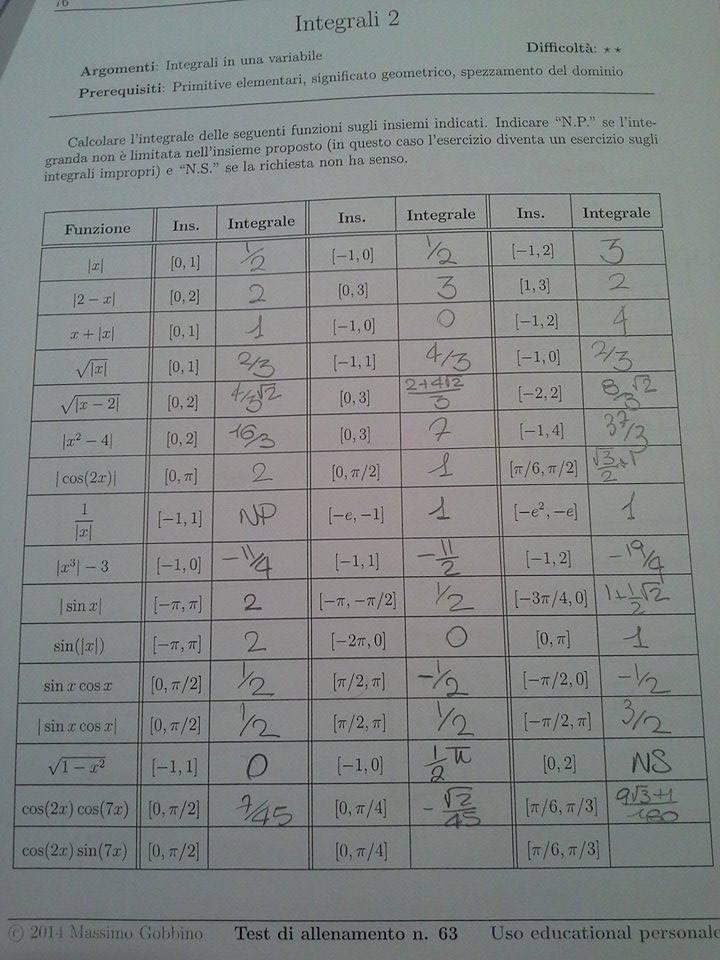 76
Integrali 2
Argomenti: Integrali in una variabile
Difficoltà: ⋆⋆
Prerequisiti: Primitive elementari, significato geometrico, spezzamento del dominio
Calcolare l'integrale delle seguenti funzioni sugli insiemi indicati. Indicare "N.P." se l'inte-
granda non è limitata nell'insieme proposto (in questo caso l'esercizio diventa un esercizio sugli
integrali impropri) e "N.S." se la richiesta non ha senso.
Funzione Ins. Integrale Ins. Integrale Ins. Integrale
|x| [0, 1] 1/2 [−1, 0] 1/2 [−1, 2] 3
|2 − x| [0, 2] 2 [0, 3] 3 [1, 3] 2
x + |x| [0, 1] 1 [−1, 0] 0 [−1, 2] 4
√|x| [0, 1] 2/3 [−1, 1] 4/3 [−1, 0] 2/3
√|x − 2| [0, 2] 4/3√2 [0, 3] (2+4√2)/3 [−2, 2] 8/3√2
|x² − 4| [0, 2] 16/3 [0, 3] 7 [−1, 4] 37/3
|cos(2x)| [0, π] 2 [0, π/2] 1 [π/6, π/2] √3/2+1
1/|x| [−1, 1] NP [−e, −1] 1 [−e², −e] 1
|x³| − 3 [−1, 0] −11/4 [−1, 1] −11/2 [−1, 2] −19/4
|sin x| [−π, π] 2 [−π, −π/2] 1/2 [−3π/4, 0] 1+1/2√2
sin(|x|) [−π, π] 2 [−2π, 0] 0 [0, π] 1
sin x cos x [0, π/2] 1/2 [π/2, π] −1/2 [−π/2, 0] −1/2
|sin x cos x| [0, π/2] 1/2 [π/2, π] 1/2 [−π/2, π] 3/2
√1 − x² [−1, 1] 0 [−1, 0] 1/2 π [0, 2] NS
cos(2x) cos(7x) [0, π/2] 7/45 [0, π/4] −√2/45 [π/6, π/3] (9√3+1)/180
cos(2x) sin(7x) [0, π/2] [0, π/4] [π/6, π/3]
© 2014 Massimo Gobbino Test di allenamento n. 63 Uso educational personale